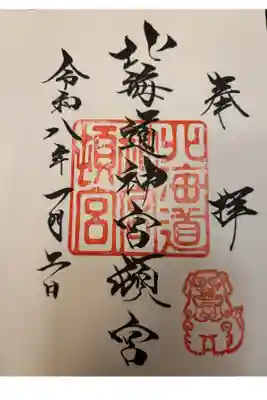 奉拝
北海道神宮頓宮
北海道神宮頓宮
令和八年一月二日